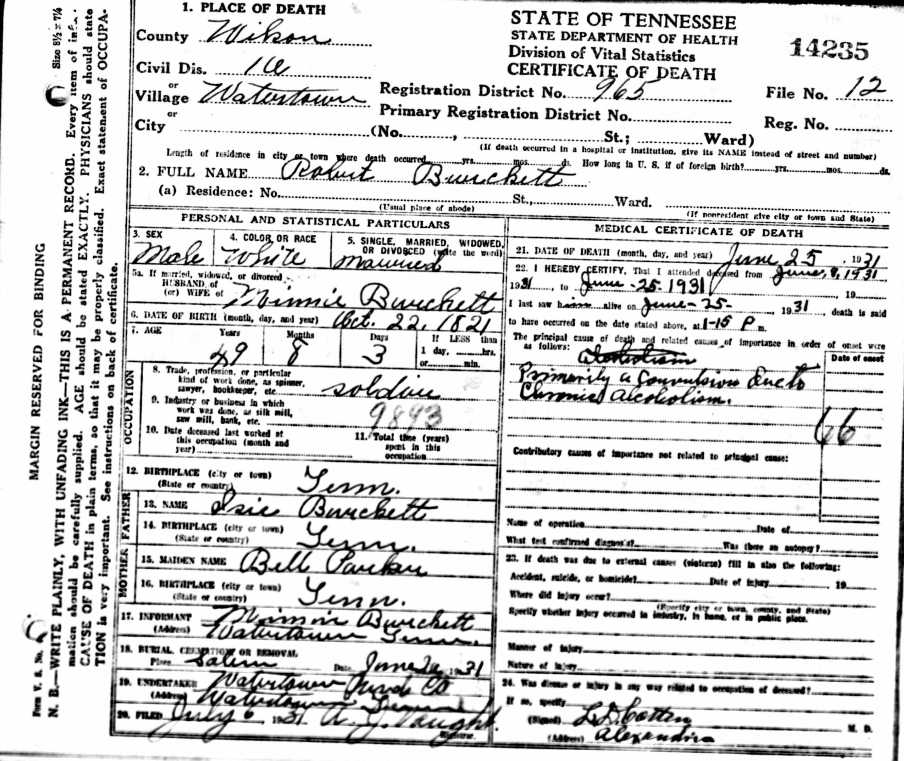 Form V. S. No.
Size 8½ x 7¼
MARGIN RESERVED FOR BINDING
N. B.—WRITE PLAINLY, WITH UNFADING INK—THIS IS A PERMANENT RECORD. Every item of infor-
mation should be carefully supplied. AGE should be stated EXACTLY. PHYSICIANS should state
CAUSE OF DEATH in plain terms, so that it may be properly classified. Exact statement of OCCUPA-
TION is very important. See instructions on back of certificate.
1. PLACE OF DEATH
County Wilson
Civil Dis. 16
or
Village Watertown
or
City (No. , St.; Ward)
STATE OF TENNESSEE
STATE DEPARTMENT OF HEALTH
Division of Vital Statistics
CERTIFICATE OF DEATH
14235
Registration District No. 965 File No. 12
Primary Registration District No. Reg. No.
(If death occurred in a hospital or institution, give its NAME instead of street and number)
Length of residence in city or town where death occurred yrs. mos. ds. How long in U. S. if of foreign birth? yrs. mos. ds.
2. FULL NAME Robert Burchett
(a) Residence: No. St., Ward.
(Usual place of abode) (If nonresident give city or town and State)
PERSONAL AND STATISTICAL PARTICULARS
3. SEX Male
4. COLOR OR RACE White
5. SINGLE, MARRIED, WIDOWED, OR DIVORCED (write the word) Married
5a. If married, widowed, or divorced
HUSBAND of
(or) WIFE of Minnie Burchett
6. DATE OF BIRTH (month, day, and year) Oct. 22, 1821
7. AGE Years Months Days If LESS than
49 8 3 1 day, hrs.
or min.
OCCUPATION
8. Trade, profession, or particular
kind of work done, as spinner,
sawyer, bookkeeper, etc. soldier
9. Industry or business in which
work was done, as silk mill,
saw mill, bank, etc. 9893
10. Date deceased last worked at
this occupation (month and
year)
11. Total time (years)
spent in this
occupation
12. BIRTHPLACE (city or town)
(State or country) Tenn.
FATHER
13. NAME Burchett
14. BIRTHPLACE (city or town)
(State or country) Tenn.
MOTHER
15. MAIDEN NAME Bell Parker
16. BIRTHPLACE (city or town)
(State or country) Tenn.
17. INFORMANT Minnie Burchett
(Address) Watertown Tenn.
18. BURIAL, CREMATION OR REMOVAL
Place Salem Date June 1931
19. UNDERTAKER Watertown Co
(Address) Watertown
20. FILED July 6 1931 Vaught
Registrar.
MEDICAL CERTIFICATE OF DEATH
21. DATE OF DEATH (month, day, and year) June 25, 1931
22. I HEREBY CERTIFY, That I attended deceased from June, 9, 1931
1931 to June-25-1931, 19
I last saw h alive on June-25-, 1931, death is said
to have occurred on the date stated above, at 1-15 P m.
The principal cause of death and related causes of importance in order of onset were
as follows: Alcoholism
Date of onset
Primarily a Convulsion due to
Chronic Alcoholism.
66
Contributory causes of importance not related to principal cause:
Name of operation Date of
What test confirmed diagnosis? Was there an autopsy?
23. If death was due to external causes (violence) fill in also the following:
Accident, suicide, or homicide? Date of injury 19
Where did injury occur?
(Specify city or town, county, and State)
Specify whether injury occurred in industry, in home, or in public place.
Manner of injury
Nature of injury
24. Was disease or injury in any way related to occupation of deceased?
If so, specify
(Signed) M. D.
(Address) Alexandria